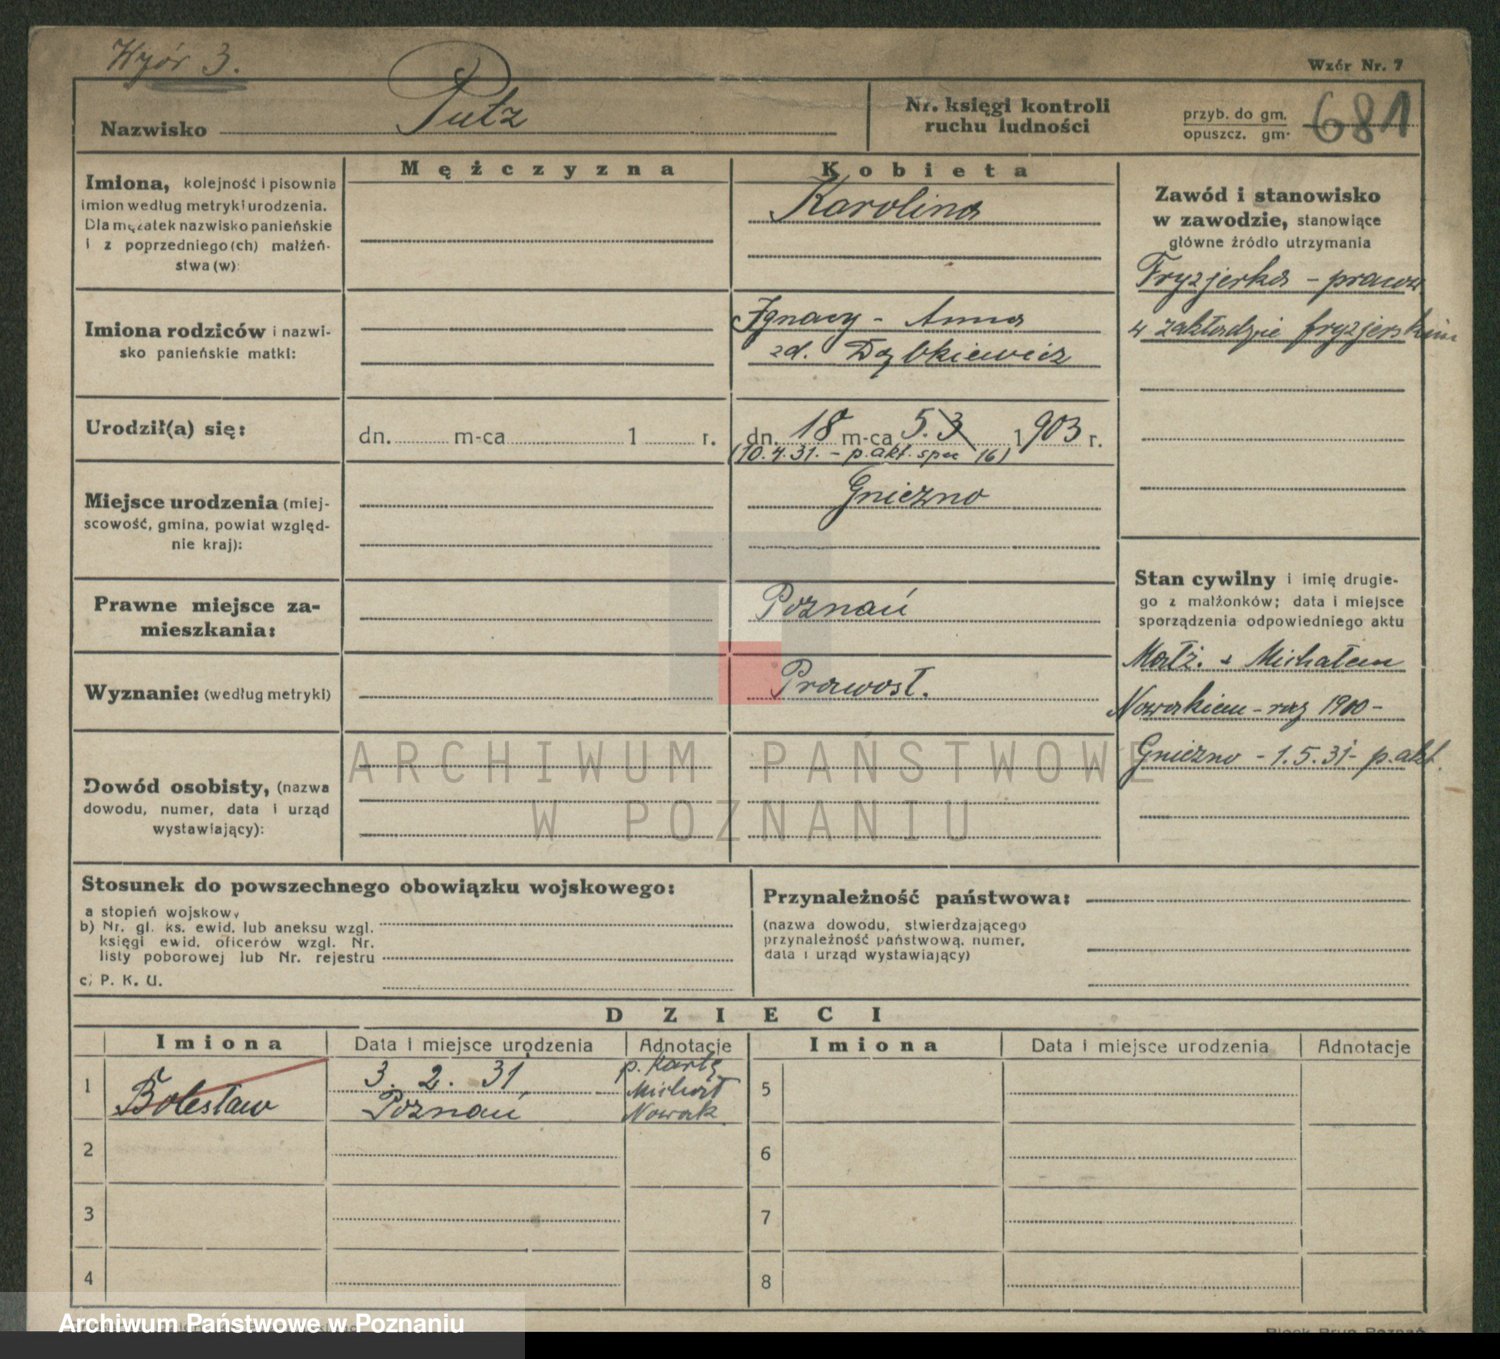 Wzór 3.
Wzór Nr. 7
Nazwisko Putz
Nr. księgi kontroli
ruchu ludności
przyb. do gm.
opuszcz. gm.
681
Mężczyzna
Kobieta
Imiona, kolejność i pisownia
imion według metryki urodzenia.
Dla mężatek nazwisko panieńskie
i z poprzedniego(ch) małżeń-
stwa(w)
Karolina
Zawód i stanowisko
w zawodzie, stanowiące
główne źródło utrzymania
Fryzjerka - pracow
w zakładzie fryzjerskim
Imiona rodziców i nazwi-
sko panieńskie matki:
Ignacy - Anna
zd. Dąbkiewicz
Urodził(a) się:
dn. m-ca 1 r.
dn. 18 m-ca 5. 3 1903 r.
(10.4.31. - p. akt. spec 16)
Miejsce urodzenia (miej-
scowość, gmina, powiat względ-
nie kraj):
Gniezno
Prawne miejsce za-
mieszkania:
Poznań
Stan cywilny i imię drugie-
go z małżonków; data i miejsce
sporządzenia odpowiedniego aktu
Małż. z Michałem
Nowakiem - 1900 -
Gniezno - 1.5.31 - p. akt.
Wyznanie: (według metryki)
Prawosł.
Dowód osobisty, (nazwa
dowodu, numer, data i urząd
wystawiający):
ARCHIWUM PAŃSTWOWE
W POZNANIU
Stosunek do powszechnego obowiązku wojskowego:
a stopień wojskowy
b) Nr. gl. ks. ewid. lub aneksu wzgl.
księgi ewid. oficerów wzgl. Nr.
listy poborowej lub Nr. rejestru
c) P. K. U.
Przynależność państwowa:
(nazwa dowodu, stwierdzającego
przynależność państwową, numer,
data i urząd wystawiający)
DZIECI
Imiona
Data i miejsce urodzenia
Adnotacje
Imiona
Data i miejsce urodzenia
Adnotacje
1
Bolesław
3. 2. 31
Poznań
p. kartę
Michał
Nowak
5
2
6
3
7
4
8
Archiwum Państwowe w Poznaniu